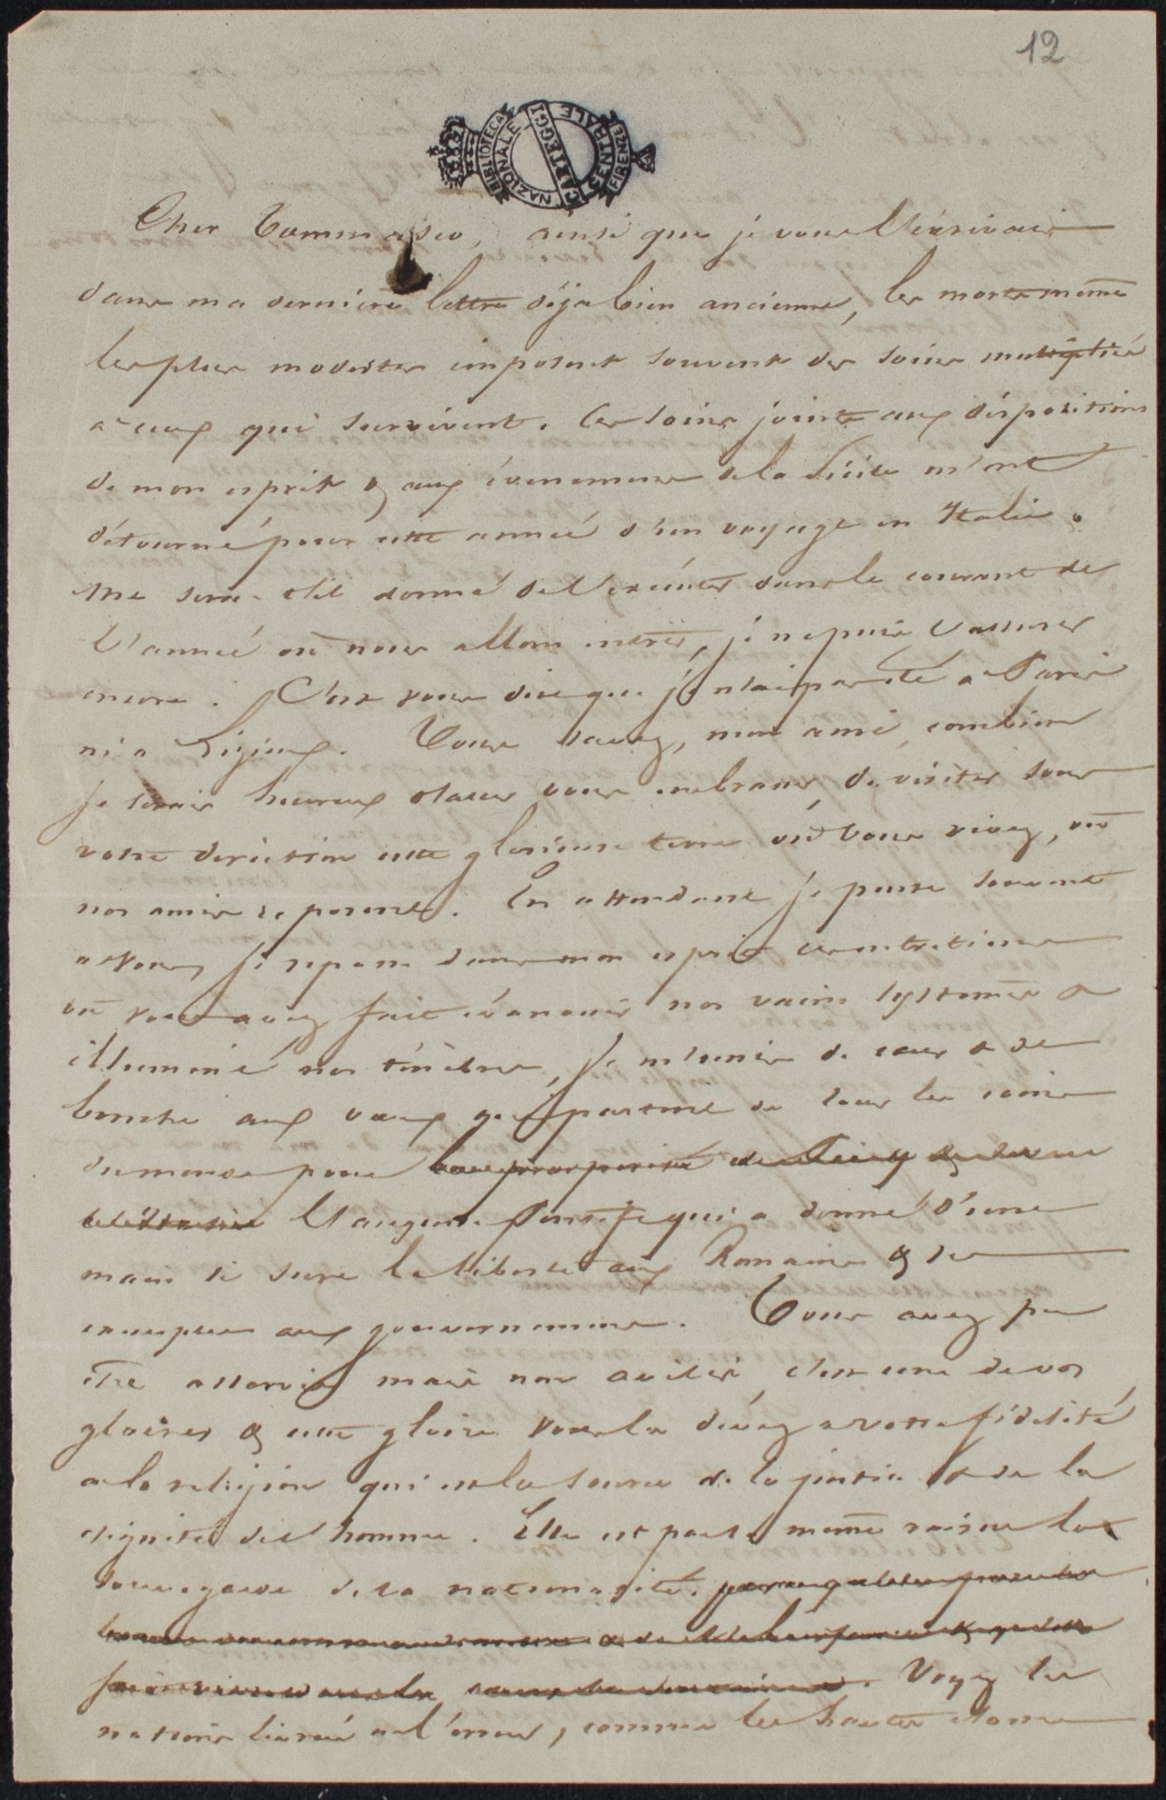 12
BIBLIOTECA NAZIONALE CENTRALE FIRENZE
CARTEGGI
Cher Tommaseo, ainsi que je vous l'écrivais
dans ma dernière lettre déjà bien ancienne, les morts même
les plus modestes imposent souvent des soins multipliés
a ceux qui survivent. Ces soins joints aux dispositions
de mon esprit & aux évenemens de la Sicile m'ont
détourné pour cette année d'un voyage en Italie.
Me sera-t-il donné de l'exécuter dans le courant de
l'année où nous allons entrer, je ne puis l'assurer
encore. C'est vous dire que je n'ai pas été a Paris
ni a Lizieux. Vous savez, mon ami, combien
je serais heureux d'aller vous embrasser, de visiter sous
votre direction cette glorieuse terre où vous vivez, où
nos amis reposent. En attendant je pense souvent
a vous, je repasse dans mon esprit ces entretiens
où vous avez fait évanouir nos vains systemes &
illuminé nos ténèbres, je m'unis de cœur & de
bouche aux vœux qui partent de tous les coins
du monde pour
l'auguste Pontife qui a donné d'une
main si sure la liberté aux Romains & des
exemples aux gouvernemens. Vous avez pu
être asservis mais non avilis, c'est une de vos
gloires & cette gloire vous la devez a votre fidélité
a la religion qui est la source de la justice & de la
dignité de l'homme. Elle est par la même raison la
sauvegarde de la nationalité.
Voyez les
nations livrées a l'erreur, comme les hautes